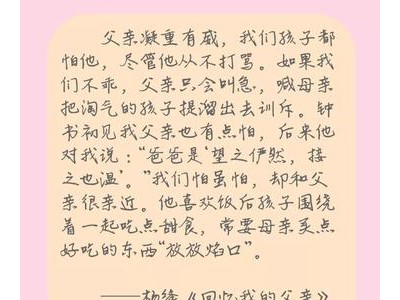 父亲凝重有威，我们孩子都
怕他，尽管他从不打骂。如果我
们不乖，父亲只会叫急，喊母亲
把淘气的孩子提溜出去训斥。钟
书初见我父亲也有点怕，后来他
对我说：“爸爸是‘望之俨然，接
之也温’。”我们怕虽怕，却和父
亲很亲近。他喜欢饭后孩子围绕
着一起吃点甜食，常要母亲买点
好吃的东西“放放焰口”。
——杨绛《回忆我的父亲》